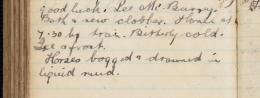 good luck. See Mr Barry.
Bath & new clothes. Home at
7.30 by train. Bitterly cold.
Ice & frost.
Horses bogged & drowned in
liquid mud.